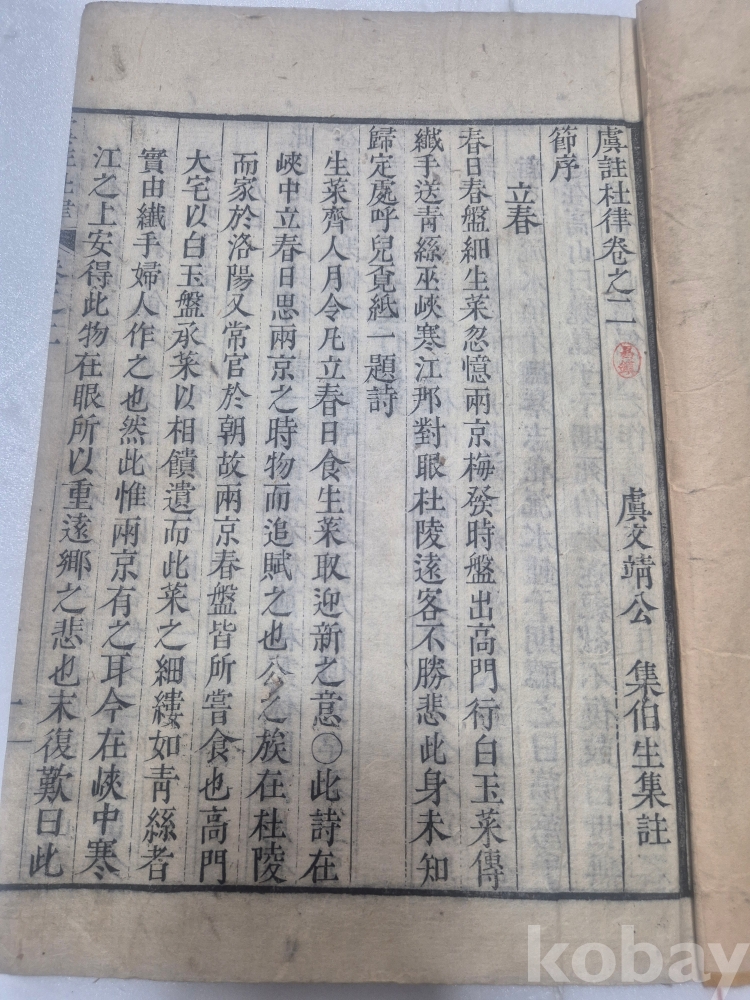 虞註杜律卷之二
虞文靖公 集伯生集註
節序
立春
春日春盤細生菜忽憶兩京梅發時盤出高門行白玉菜傳
纎手送青絲巫峽寒江那對眼杜陵遠客不勝悲此身未知
歸定處呼兒覔紙一題詩
生菜齊人月令凢立春日食生菜取迎新之意〇此詩在
峽中立春日思兩京之時物而追賦之也公之族在杜陵
而家於洛陽又常官於朝故兩京春盤皆所嘗食也高門
大宅以白玉盤承菜以相饋遺而此菜之細縷如青絲者
實由纎手婦人作之也然此惟兩京有之耳今在峽中寒
江之上安得此物在眼所以重遠鄉之悲也末復歎曰此
kobay